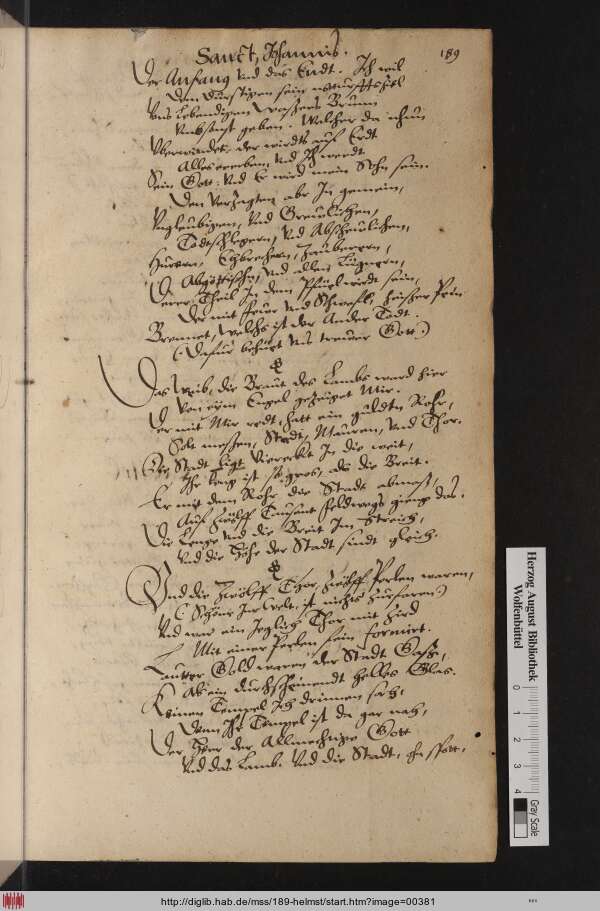 Sanct Johannis.
189
Der Anfang vnd das Endt. Ich wil
Dem durstigen sein
Vns Lebendigen Wassers Brunn
Vmbsonst geben. Welcher da nhun
Vberwindet, der wirdts auf Erdt
Alles ererben, vnd Ich werdt
Sein Gott: vnd Er wird mein Sohn sein.
Den Verzagten abr In gemein,
Vngleubigen, vnd Greulichen,
Todtschlegern, vnd Abscheulichen,
Hurern, Ehbrechern, Zauberern,
Abgöttischn, vnd allen Lügnern,
Derer Theil In dem Pfuel wirdt sein,
Der mit feuer vnd Schwefel, heisser Pein
Brennet, welchs ist der Ander Todt.
(Dafur behüt vns treuer Gott.)
Das Weib, die Braut des Lambs ward hier
Von eym Engel gezeiget Mir.
Der mit Mir redt, hatt ein gulden Rohr,
Solt messen, Stadt, Mauren, vnd Thor.
Die Stadt ligt Viereckt In die weit,
Ihr leng ist so gros, als die Breit.
Er mit dem Rohr die Stadt abmass,
Auf Zwölff Tausent feldwegs gieng das.
Die Lenge vnd die Breit Im Streich,
Vnd die Höhe der Stadt sindt gleich.
Vnd die Zwölff Thor, Zwölff Perlen waren,
(Schöner In welt ist nichts zurfaren.)
Vnd war ein Jeglich Thor mit Zird
Mit einer Perlen fein formirt.
Lautter Gold waren der Stadt Gassn,
Als ein durchscheinendt helles Glas.
Keinen Tempel Ich drinnen sach,
Denn Ihr Tempel ist da gar nah,
Der Herr der Allmechtige Gott
Vnd das Lamb. Vnd die Stadt, ohn spott,
Herzog August Bibliothek
Wolfenbüttel
0 1 2 3 4
Gray Scale
http://diglib.hab.de/mss/189-helmst/start.htm?image=00381